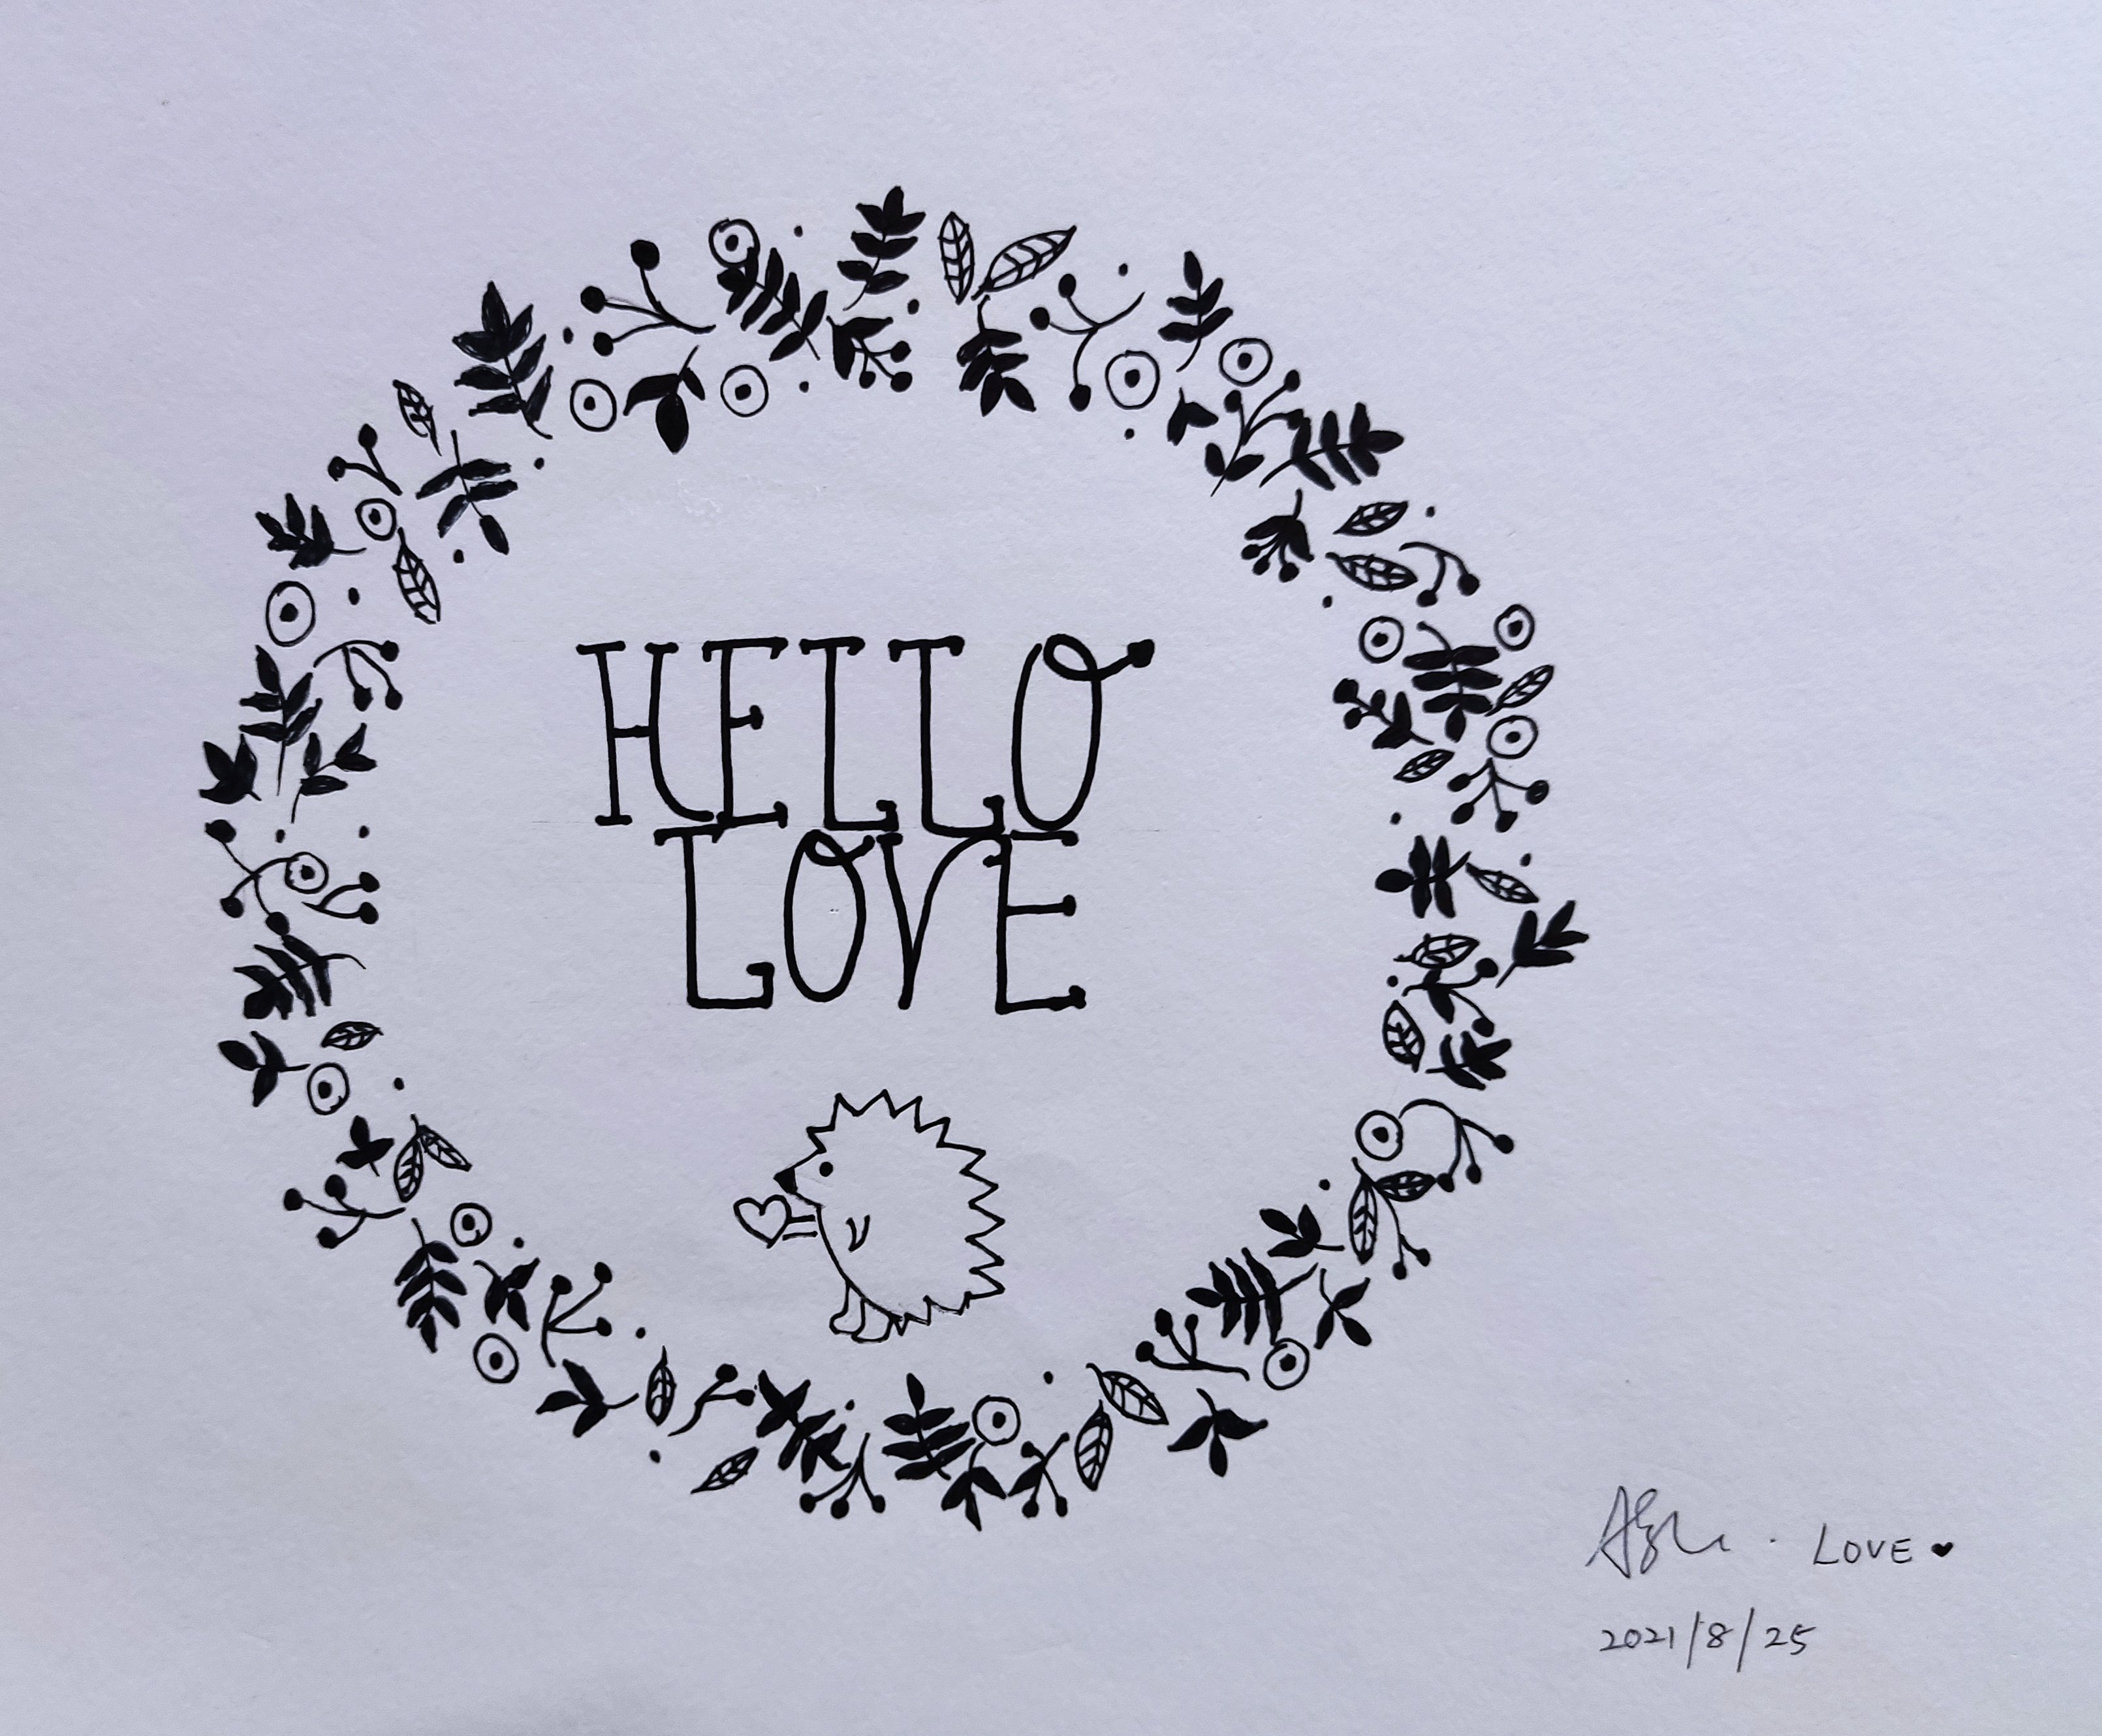 HELLO
LOVE
LOVE
2021/8/25